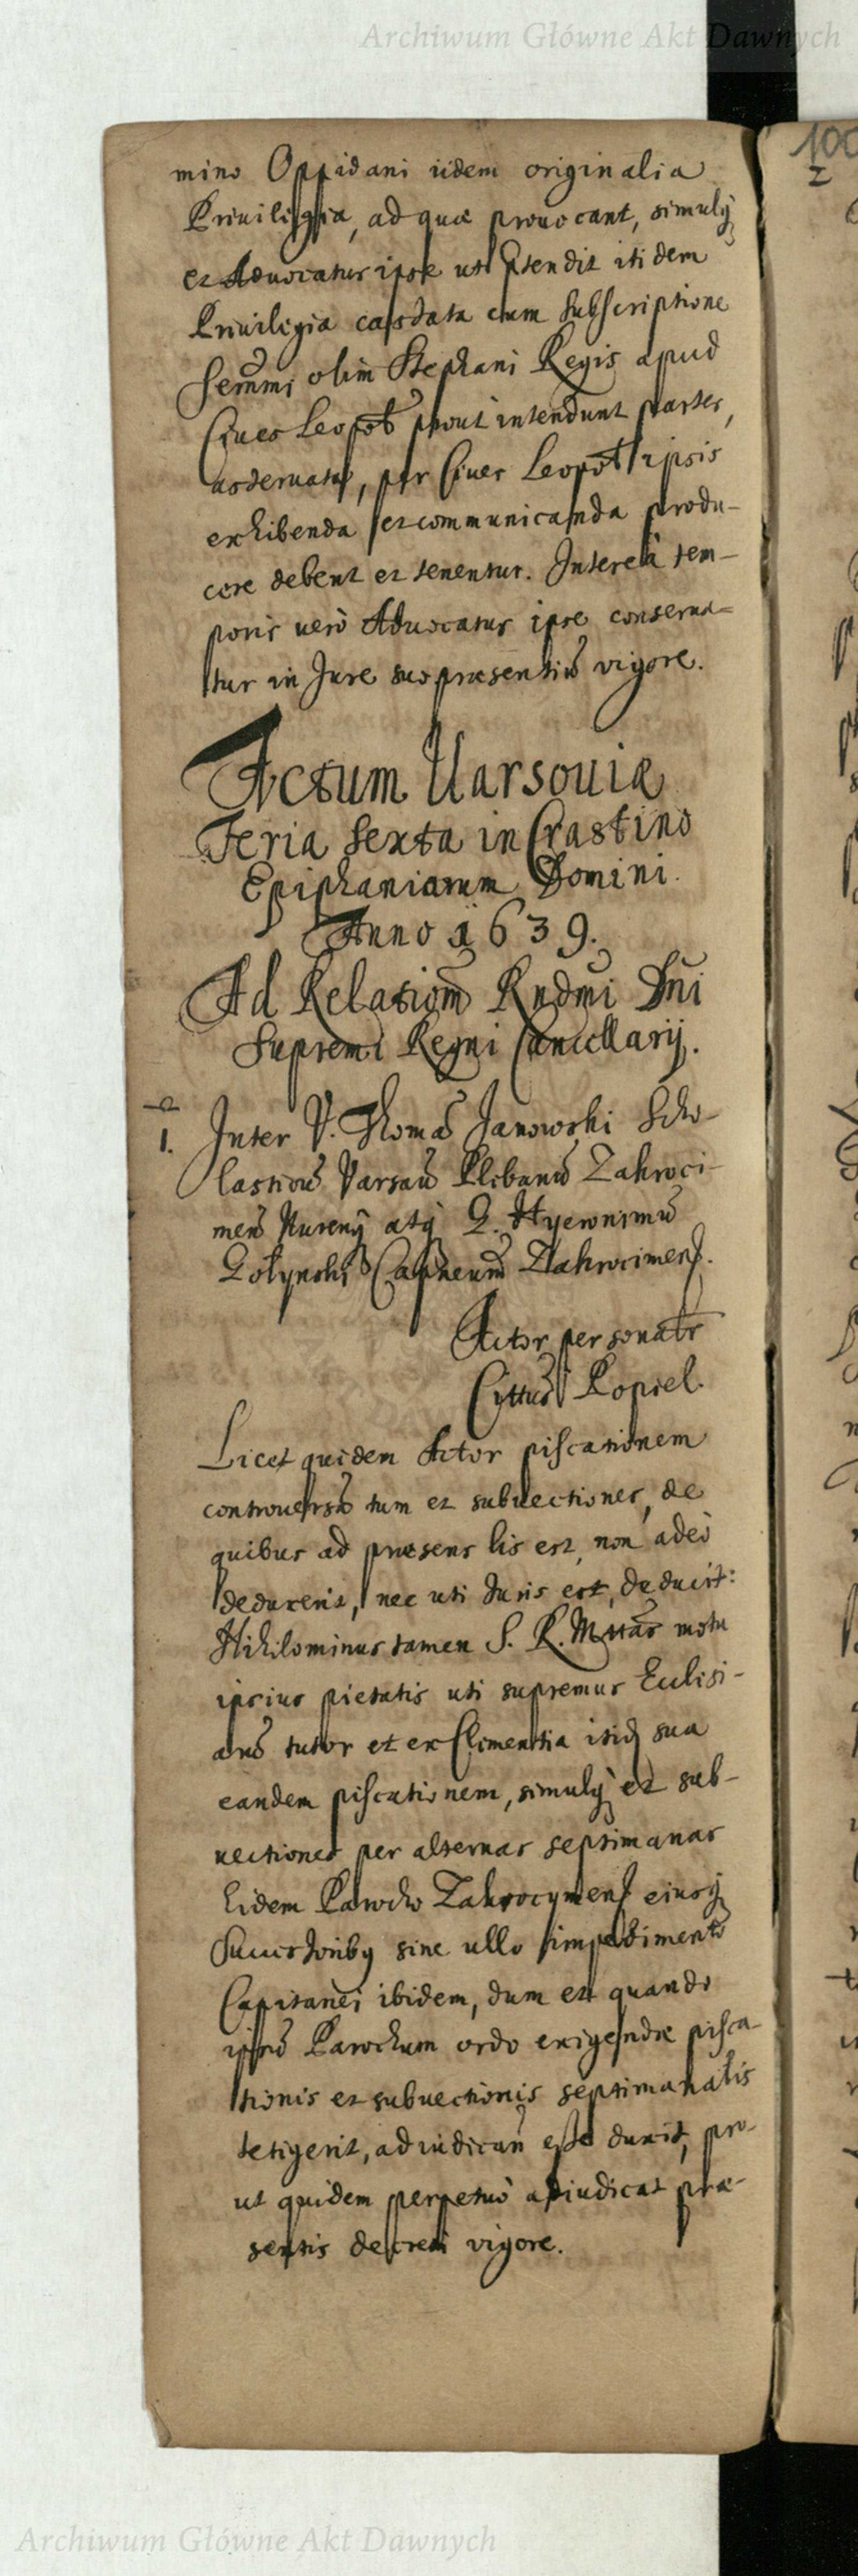 Archiwum Główne Akt Dawnych
100
2
mino Oppidani iidem originalia
Priuiligia, ad quæ prouocant, simulq̃
et Aduocatus ipse uti ptendit itidem
Priuiligia casdata cum subscriptione
Sermi olim Stephani Regis apud
Ciues Leopoł prout intendunt partes,
asseruata, per Ciues Leopoł ipsis
exhibenda et communicanda produ-
cere debent et tenentur. Intereà tem-
poris uerò Aduocatus ipse conserua-
tur in Jure suo præsentiũ vigore.
Actum Uarsouiæ
Feria Sexta in Crastino
Epiphaniarum Domini.
Anno 1639.
Ad Relationẽ Rndmi Dni
Supremi Regni Cancellarij.
1. Inter V. Thomã Janowski Scho-
lasticũ Varsaũ Plebanũ Zakroci-
menũ atq̃ G. Hyeronimũ
Gołynski Capneum Zakrocimens.
Actor personatr
Cittus Popiel.
Licet quidem Actor piscationem
controuersũ tum et subuectiones, de
quibus ad præsens lis est, non adeò
deduxerit, nec uti Iuris est, deducit:
Nihilominus tamen S. R. Mttas motu
ipsius pietatis uti supremus Eclisi-
arũ tutor et ex Climentia itiq̃ sua
eandem piscationem, simulq̃ et sub-
uectiones per alternas septimanas
Eidem Parocho Zakrocymens eiusq̃
Succestoribq sine ullo impedimento
Capitanei ibidem, dum et quando
ipsũ Parochum ordo exigendæ pisca-
tionis et subuectionis septimanalis
tetigerit, adiudicañ esse duxit, pro-
ut quidem perpetuò adiudicat præ-
sentis decreti vigore.
Archiwum Główne Akt Dawnych